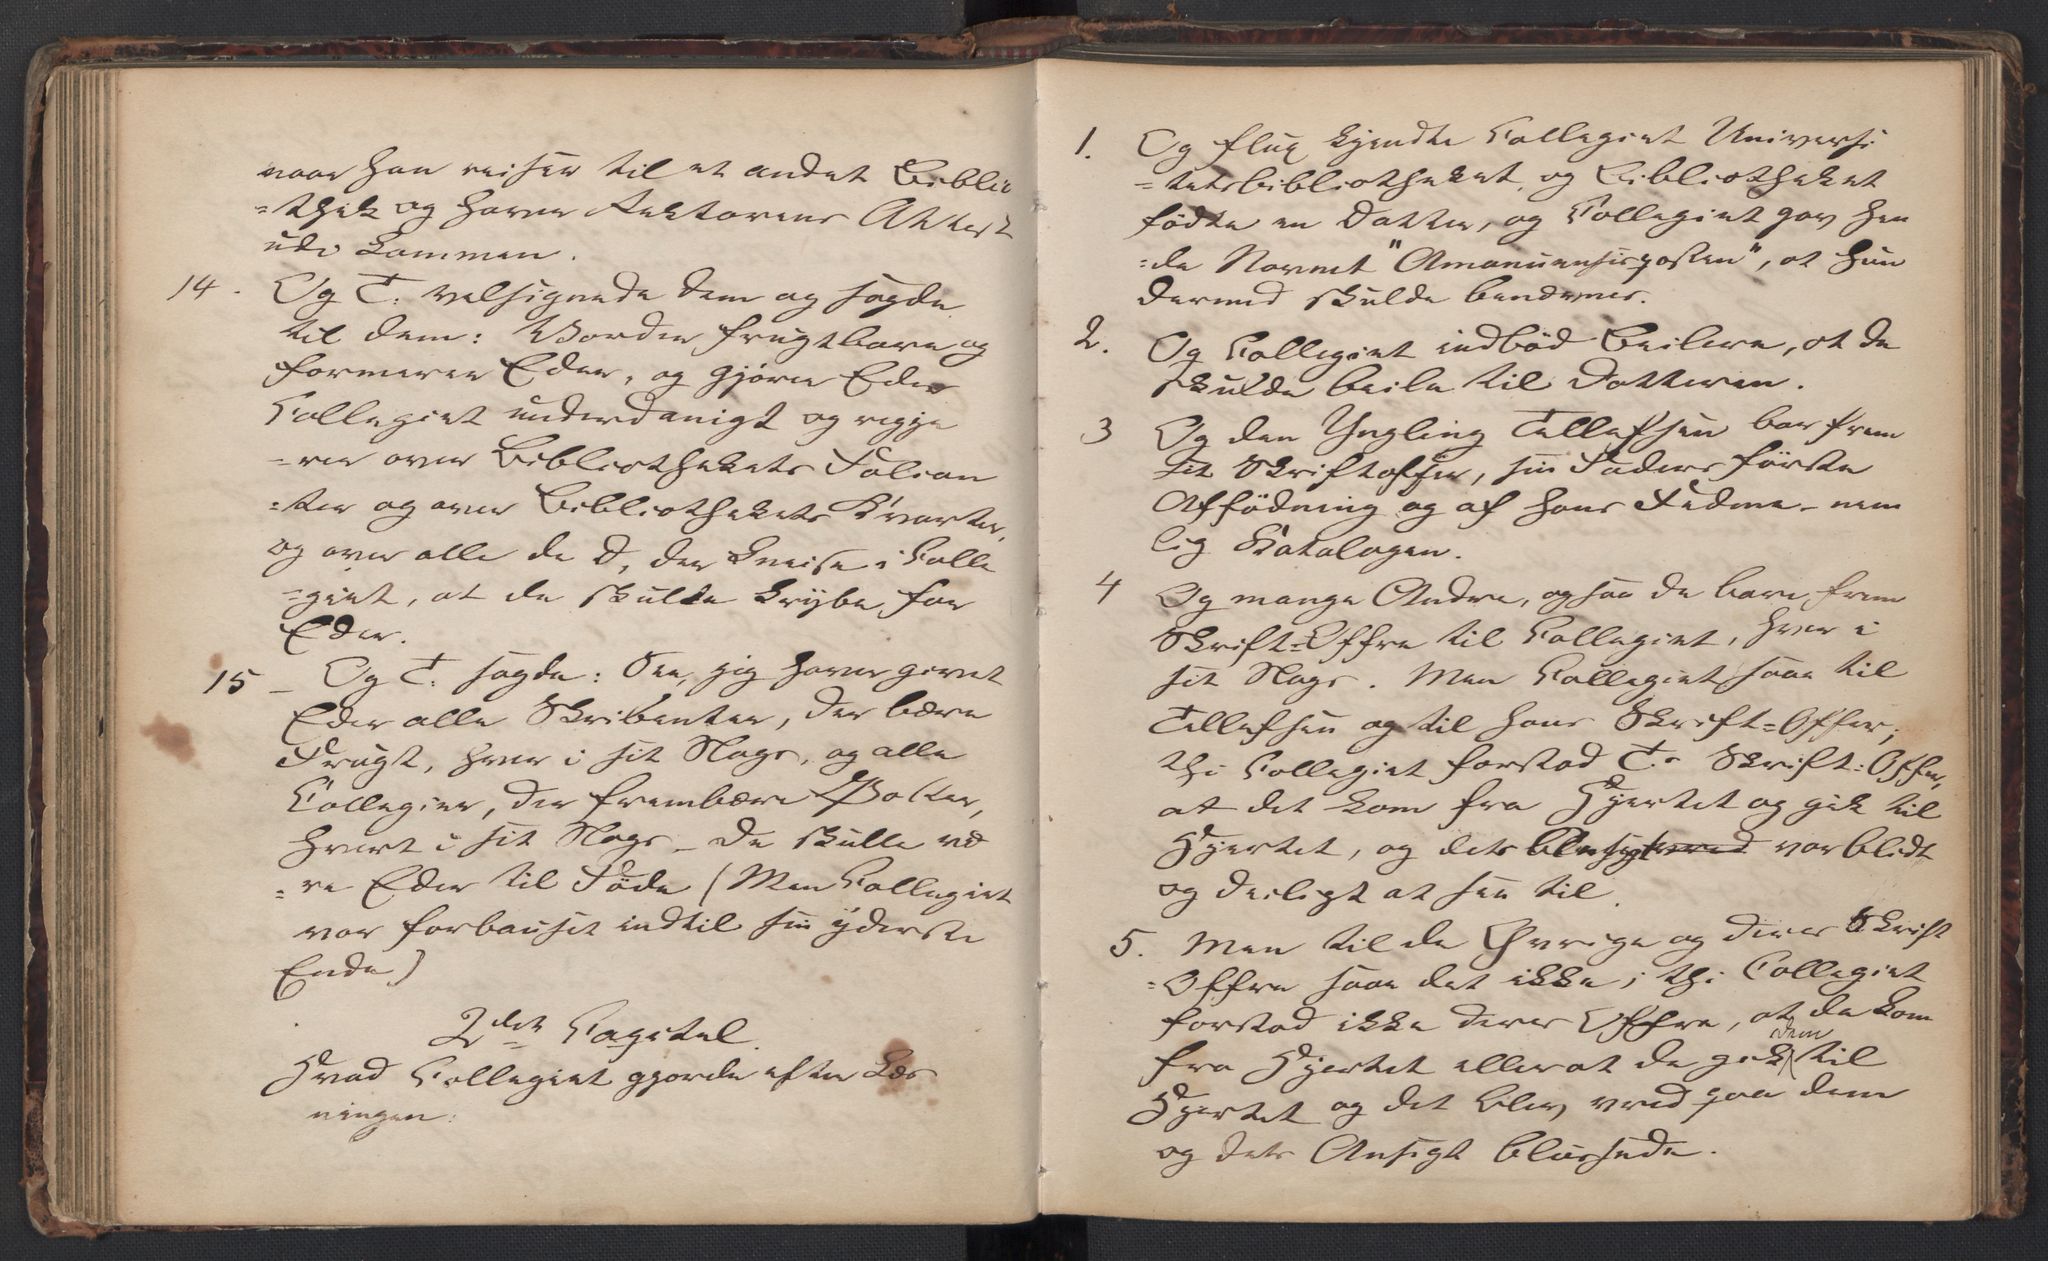 naar han reiser til et andet Biblio
=thek og haver Rektorens Attest
udi Lommen.
14. Og T. velsignede dem og sagde
til dem: Vorder frugtbare og
formerer Eder, og gjører Eder
Collegiet underdanigt og regje
=rer over Bibliothekets Folian
=ter og over Bibliothekets Kvarter,
og over alle de D, der kneise i Colle
=giet, at de skulle krybe for
Eder.
15 _ Og T. sagde: See, jeg haver givet
Eder alle Skribenter, der bære
Frugt, hver i sit Slags, og alle
Collegier, der frembære Poster,
hvert i sit Slags _ De skulle væ
=re Eder til Føde (Men Collegiet
var forbauset indtil sin yderste
Ende)
2det Capitel.
Hvad Collegiet gjorde efter Læs
ningen:
1. Og flux kjendte Collegiet Universi
=tetsbibliotheket, og Bibliotheket
fødte en Datter, og Collegiet gav hen
=de Navnet "Amanuensisposten", at hun
dermed skulde benævnes.
2. Og Collegiet indbød Beilere, at de
skulde beile til Datteren.
3 Og den Yngling Tellefsen bar frem
sit Skriftoffer, sin Faders første
Affødning og af hans Fedme _ nem
lig Katalogen.
4 Og mange Andre, ogsaa de bare frem
Skrift=Offre til Collegiet, hver i
sit Slags. Men Collegiet saae til
Tellefsen og til hans Skrift=Offer;
thi Collegiet forstod T.s Skrift=Offer,
at det kom fra Hjertet og gik til
Hjertet, og dets var blidt
og deiligt at see til.
5. Men til de Øvrige og deres Skrift
=Offre saae det ikke; thi Collegiet
forstod ikke deres Offre, at de kom
fra Hjertet eller at de gik dem til
Hjertet og det blev vred paa dem
og dets Ansigt blussede.